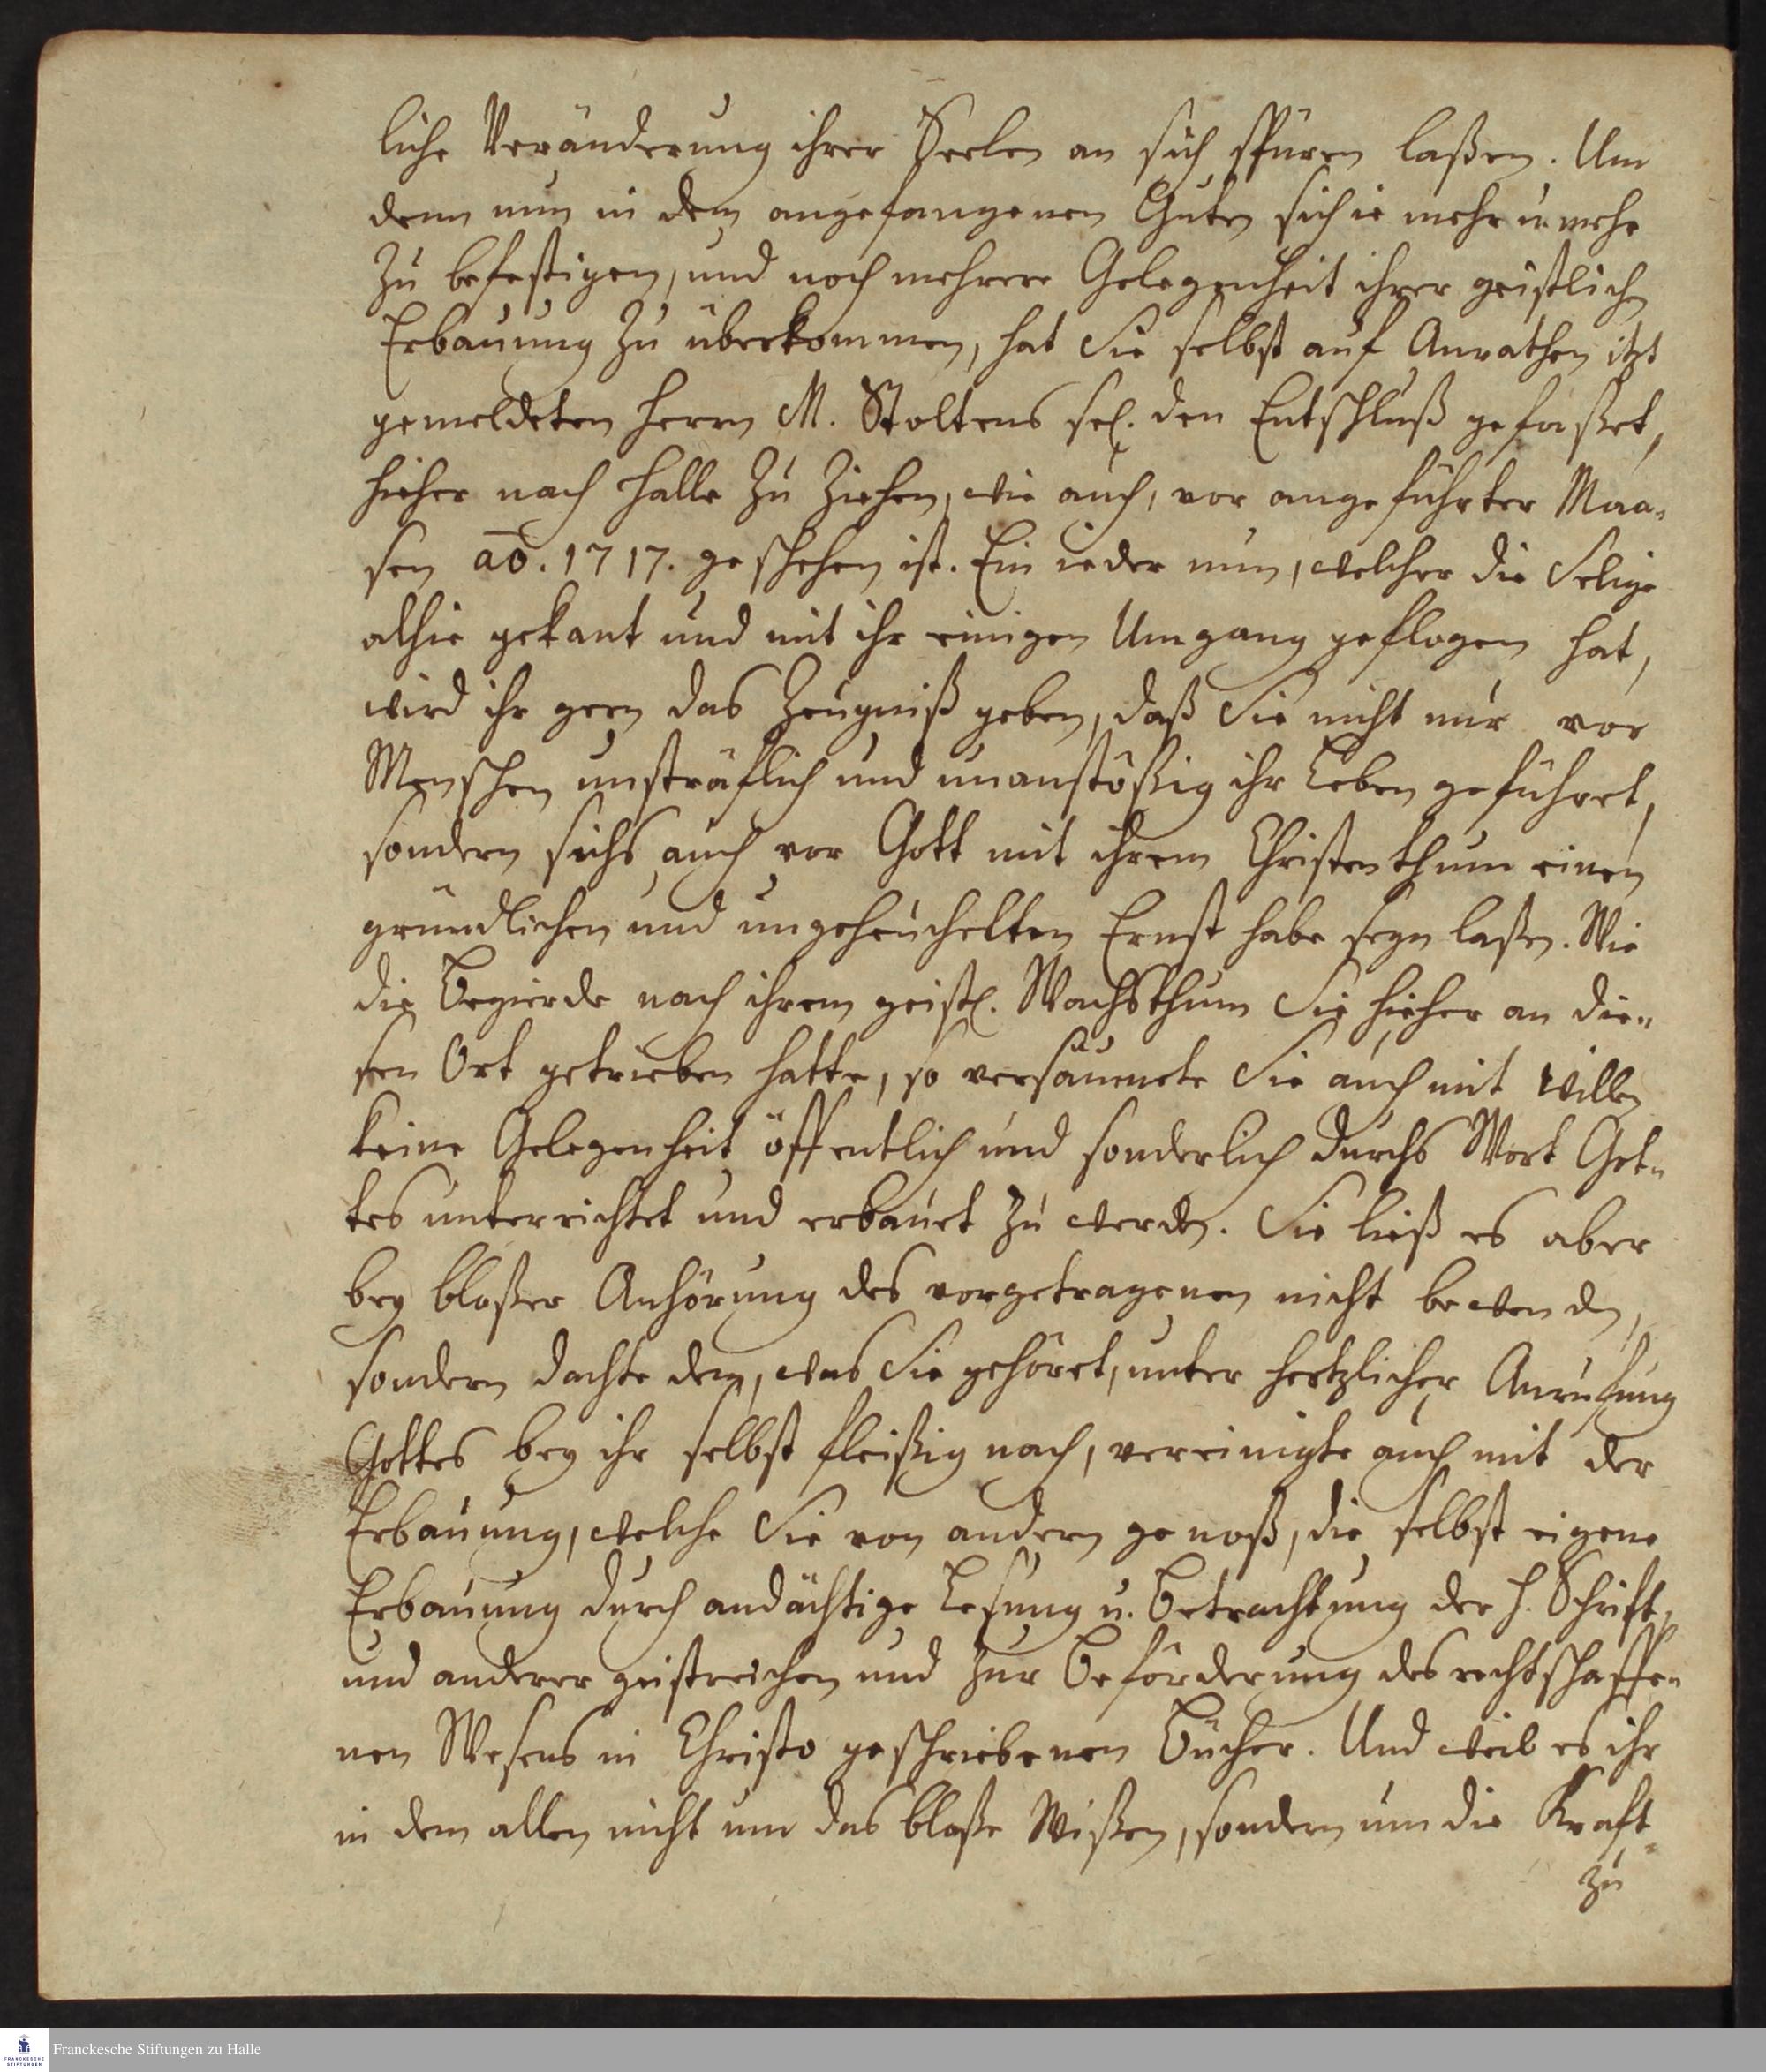 liche Veränderung ihrer Seelen an sich spüren laßen. Um
denn nun in dem angefangenen Guten sich ie mehr u. mehr
zu befestigen, und noch mehrere Gelegenheit ihrer geistlichen
Erbauung zu überkommen, hat Sie selbst auf Anrathen itzt
gemeldeten Herrn M. Stoltens sel. den Entschluß gefaßet,
hieher nach Halle zu ziehen, wie auch, vor angeführter Maa-
sen ao. 1717. geschehen ist. Ein ieder nun, welcher die Selige
alhie gekant und mit ihr einigen Umgang geflogen hat,
wird ihr gern das Zeugniß geben, daß Sie nicht nur vor
Menschen unsträflich und unanstößig ihr Leben geführet,
sondern sichs auch vor Gott mit ihrem Christenthum einen
gründlichen und ungeheuchelten Ernst habe seyn laßen. Wie
die Begierde nach ihrem geistl. Wachsthum Sie hieher an die-
sen Ort getrieben hatte, so versäumete Sie auch mit willen
keine Gelegenheit öffentlich und sonderlich durchs Wort Got-
tes unterrichtet und erbauet zu werden. Sie ließ es aber
bey bloßer Anhörung des vorgetragenen nicht bewenden,
sondern dachte dem, was Sie gehöret, unter hertzlicher Anrufung
Gottes bey ihr selbst fleißig nach, vereinigte auch mit der
Erbauung, welche Sie von andern genoß, die selbst eigene
Erbauung durch andächtige Lesung u. Betrachtung der H. Schrift,
und anderer geistreichen und zur Beförderung des rechtschaffe-
nen Wesens in Christo geschriebenen Bücher. Und weil es ihr
in dem allen nicht um das bloße Wißen, sondern um die Kraft
zu
Franckesche Stiftungen zu Halle
FRANCKESCHE
STIFTUNGEN